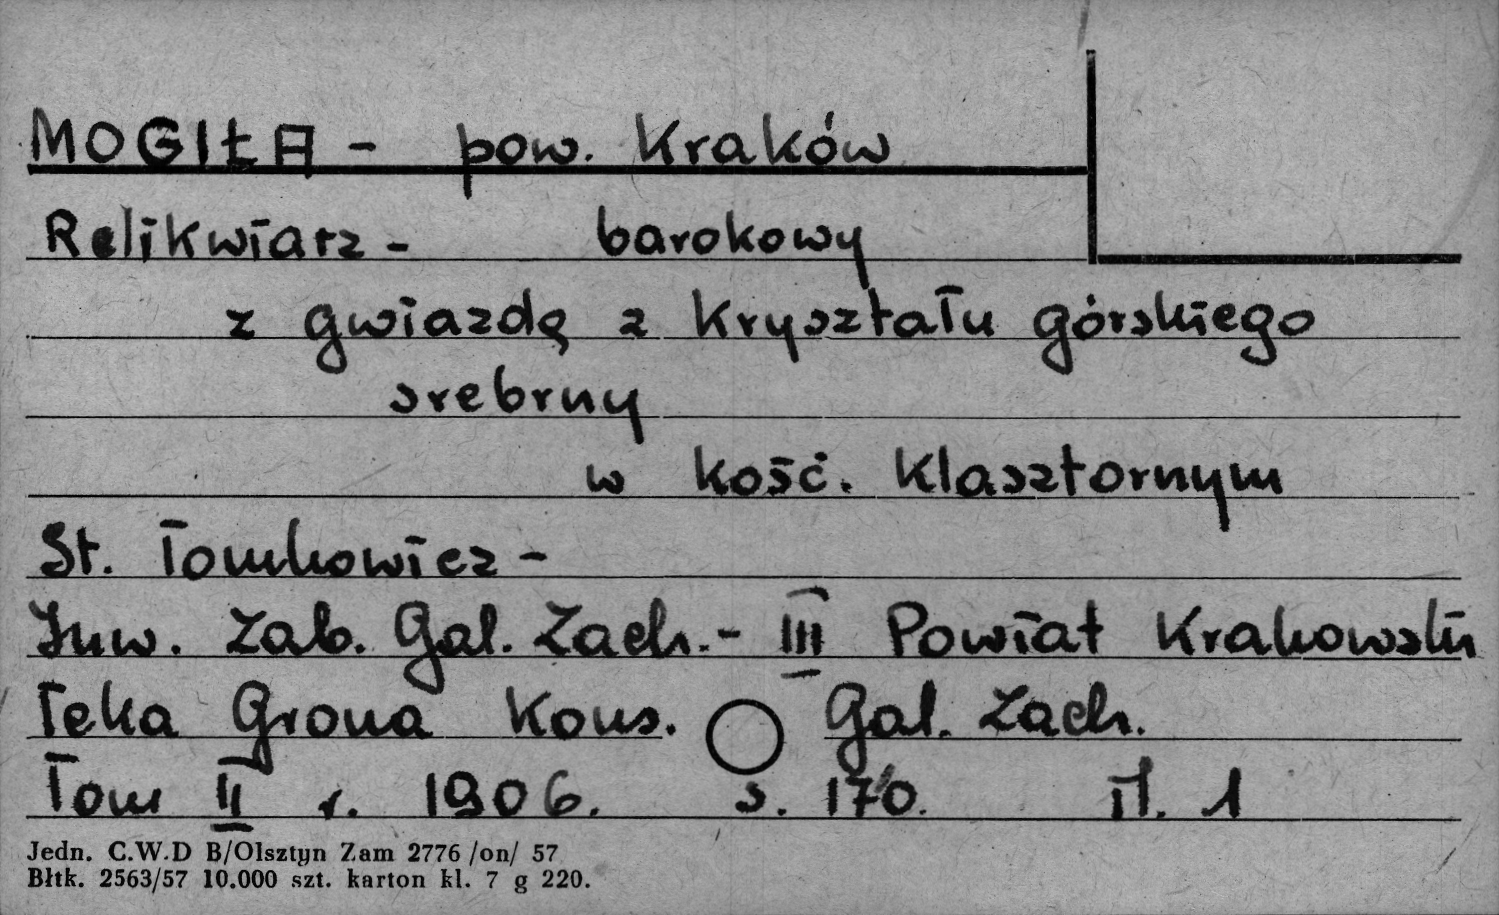 MOGIŁA - pow. Kraków
Relikwiarz - barokowy
z gwiazdą z kryształu górskiego
srebrny
w kość. klasztornym
St. Tomkowicz -
Inw. Zab. Gal. Zach. - III Powiat Krakowski
Teka Grona Kons. Gal. Zach.
Tom II r. 1906. s. 170. il. 1
Jedn. C.W.D B/Olsztyn Zam 2776 /on/ 57
Błtk. 2563/57 10.000 szt. karton kl. 7 g 220.